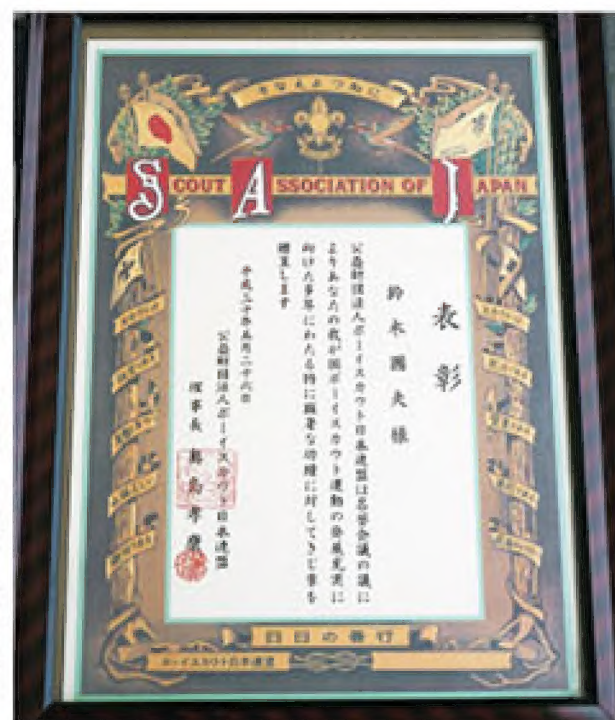 そなえよつねに
SCOUT ASSOCIATION OF JAPAN
表彰
鈴木國夫様
公益財団法人ボーイスカウト日本連盟は名誉会議の議に
よりあなたの我が国ボーイスカウト運動の発展充実に
向けた多年にわたる特に顕著な功績に対してきじ章を
贈呈します
平成三十年五月二十六日
公益財団法人ボーイスカウト日本連盟
理事長 奥島孝康
日日の善行
ボーイスカウト日本連盟